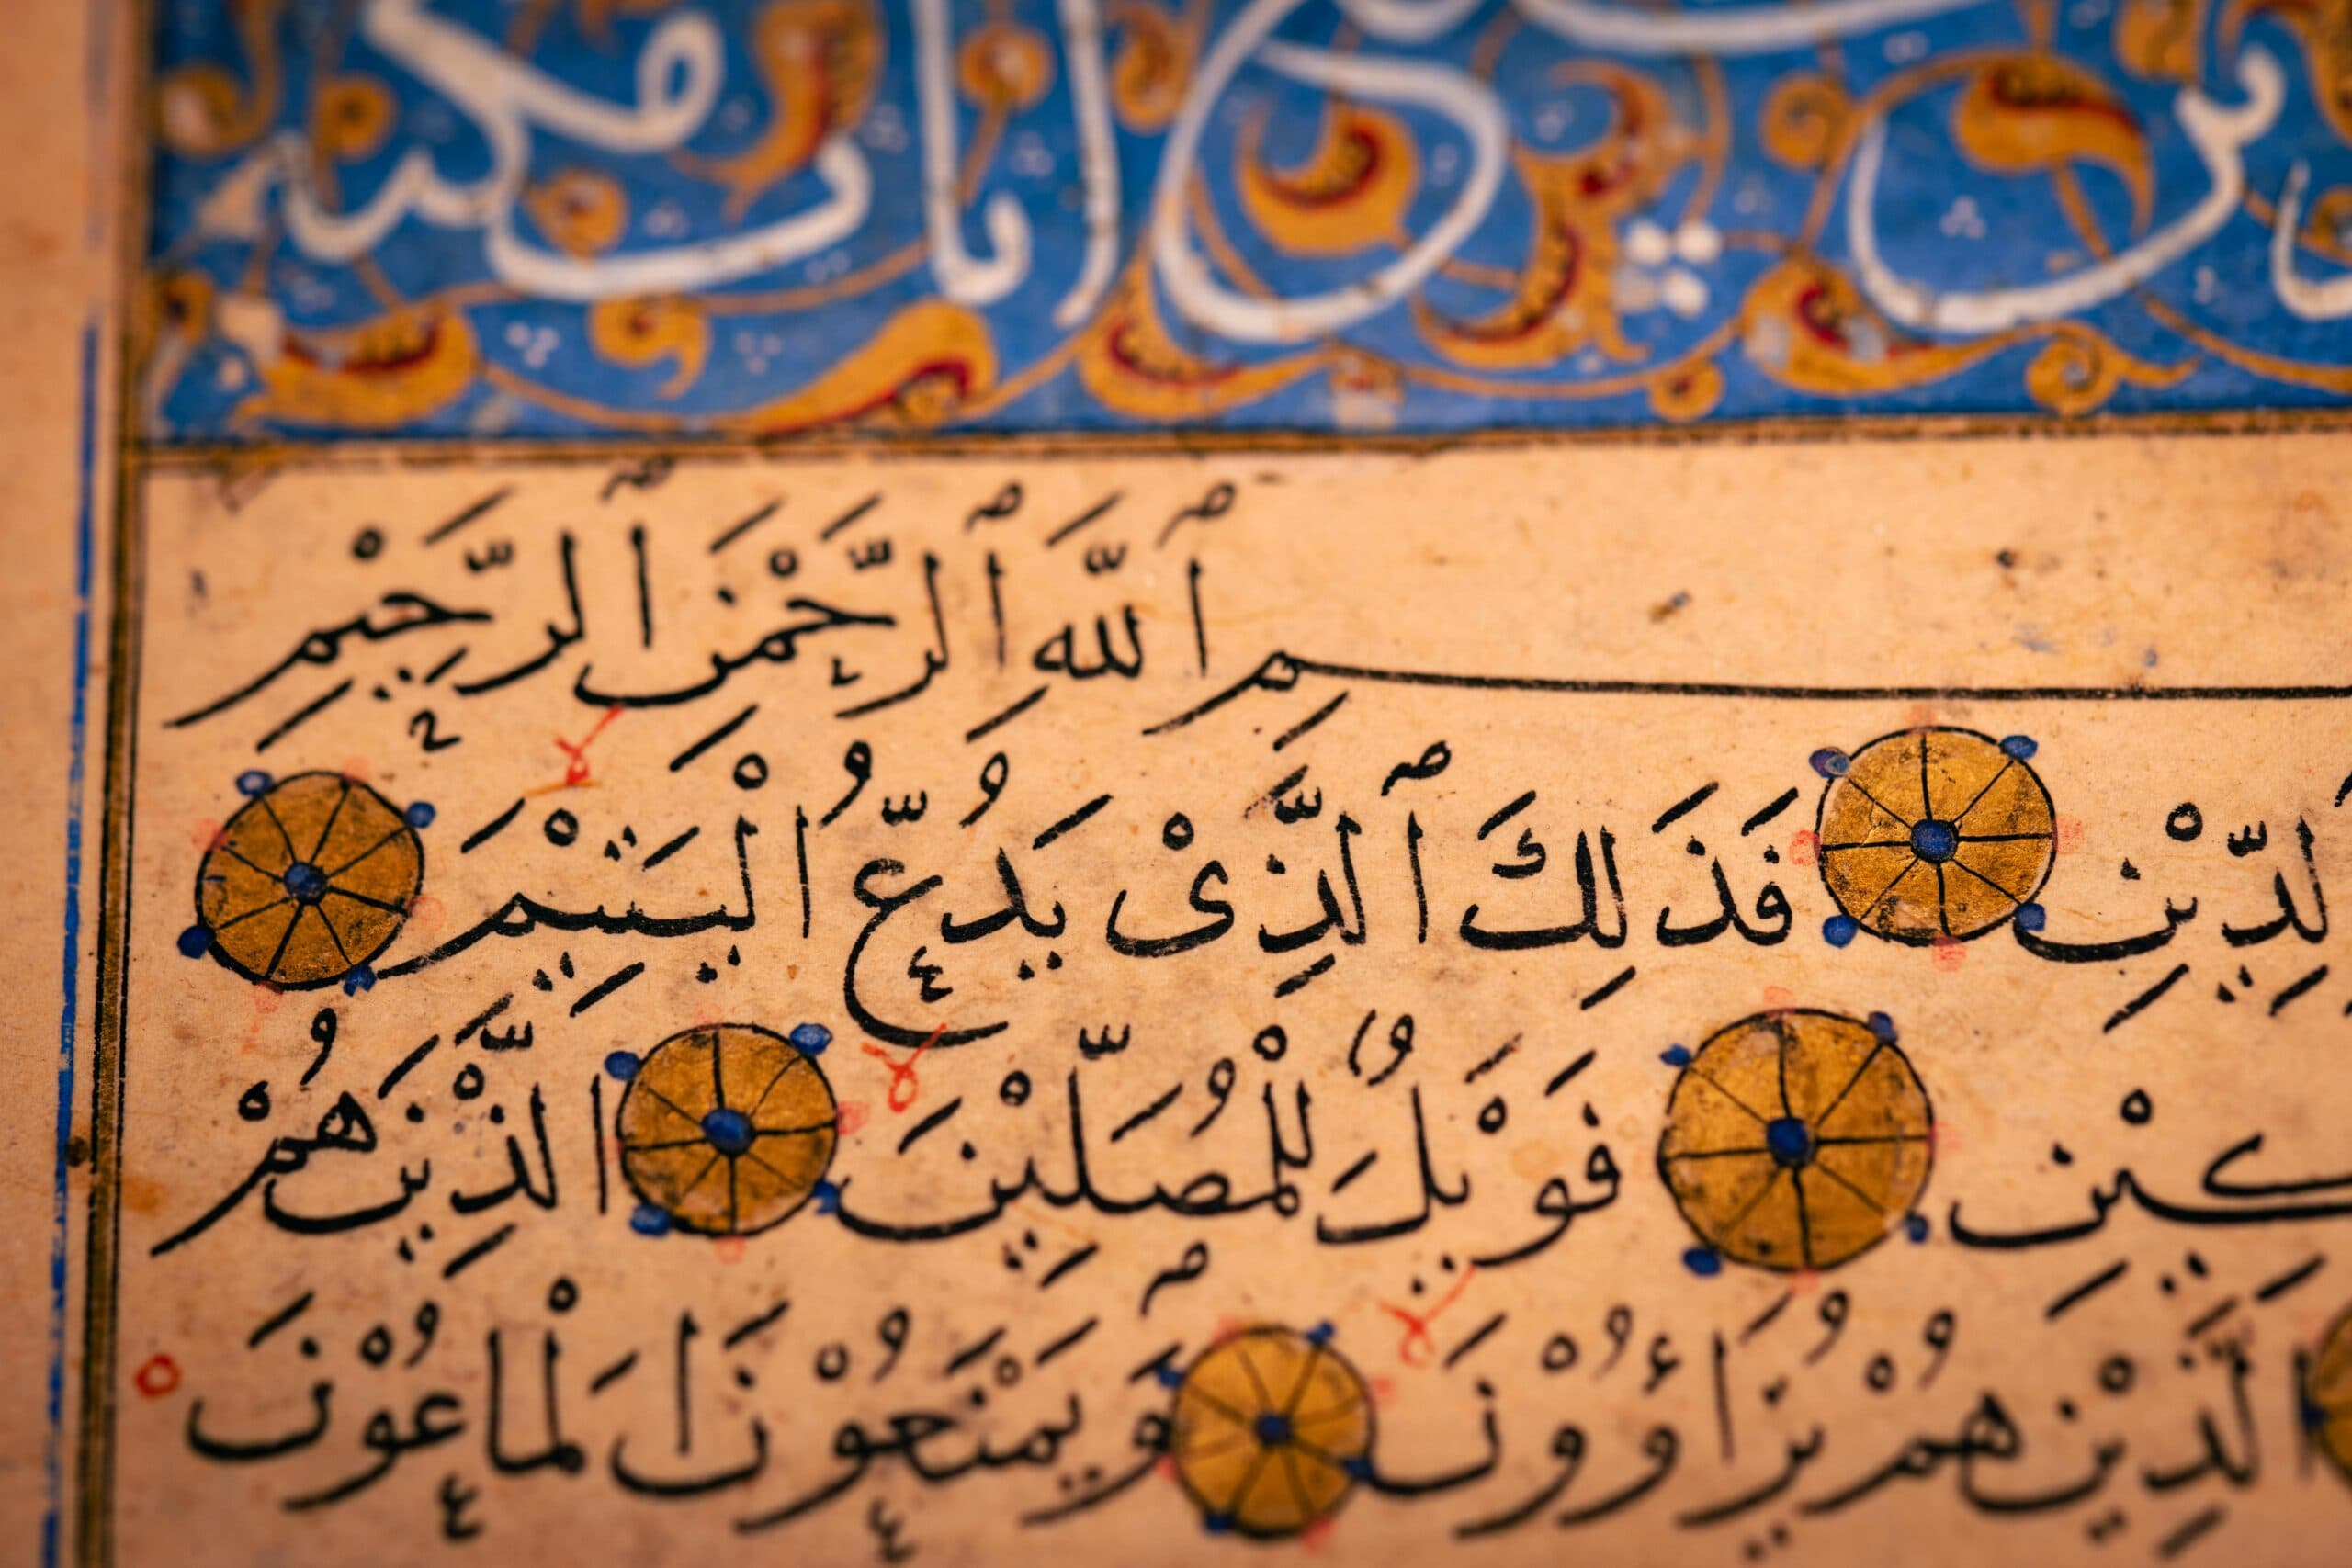 ايات مكيه
ـسمِ ٱللَّهِ ٱلرَّحْمَنِ ٱلرَّحِيْمِ
لدِّيْنِ فَذَلِكَ ٱلَّذِىْ يَدُعُّ الْيَتِيْمَ
ـكِيْنِ فَوَيْلٌ لِلْمُصَلِّيْنَ الَّذِيْنَ هُمْ
الَّذِيْنَ هُمْ يُرَاءُوْنَ وَيَمْنَعُوْنَ الْمَاعُوْنَ